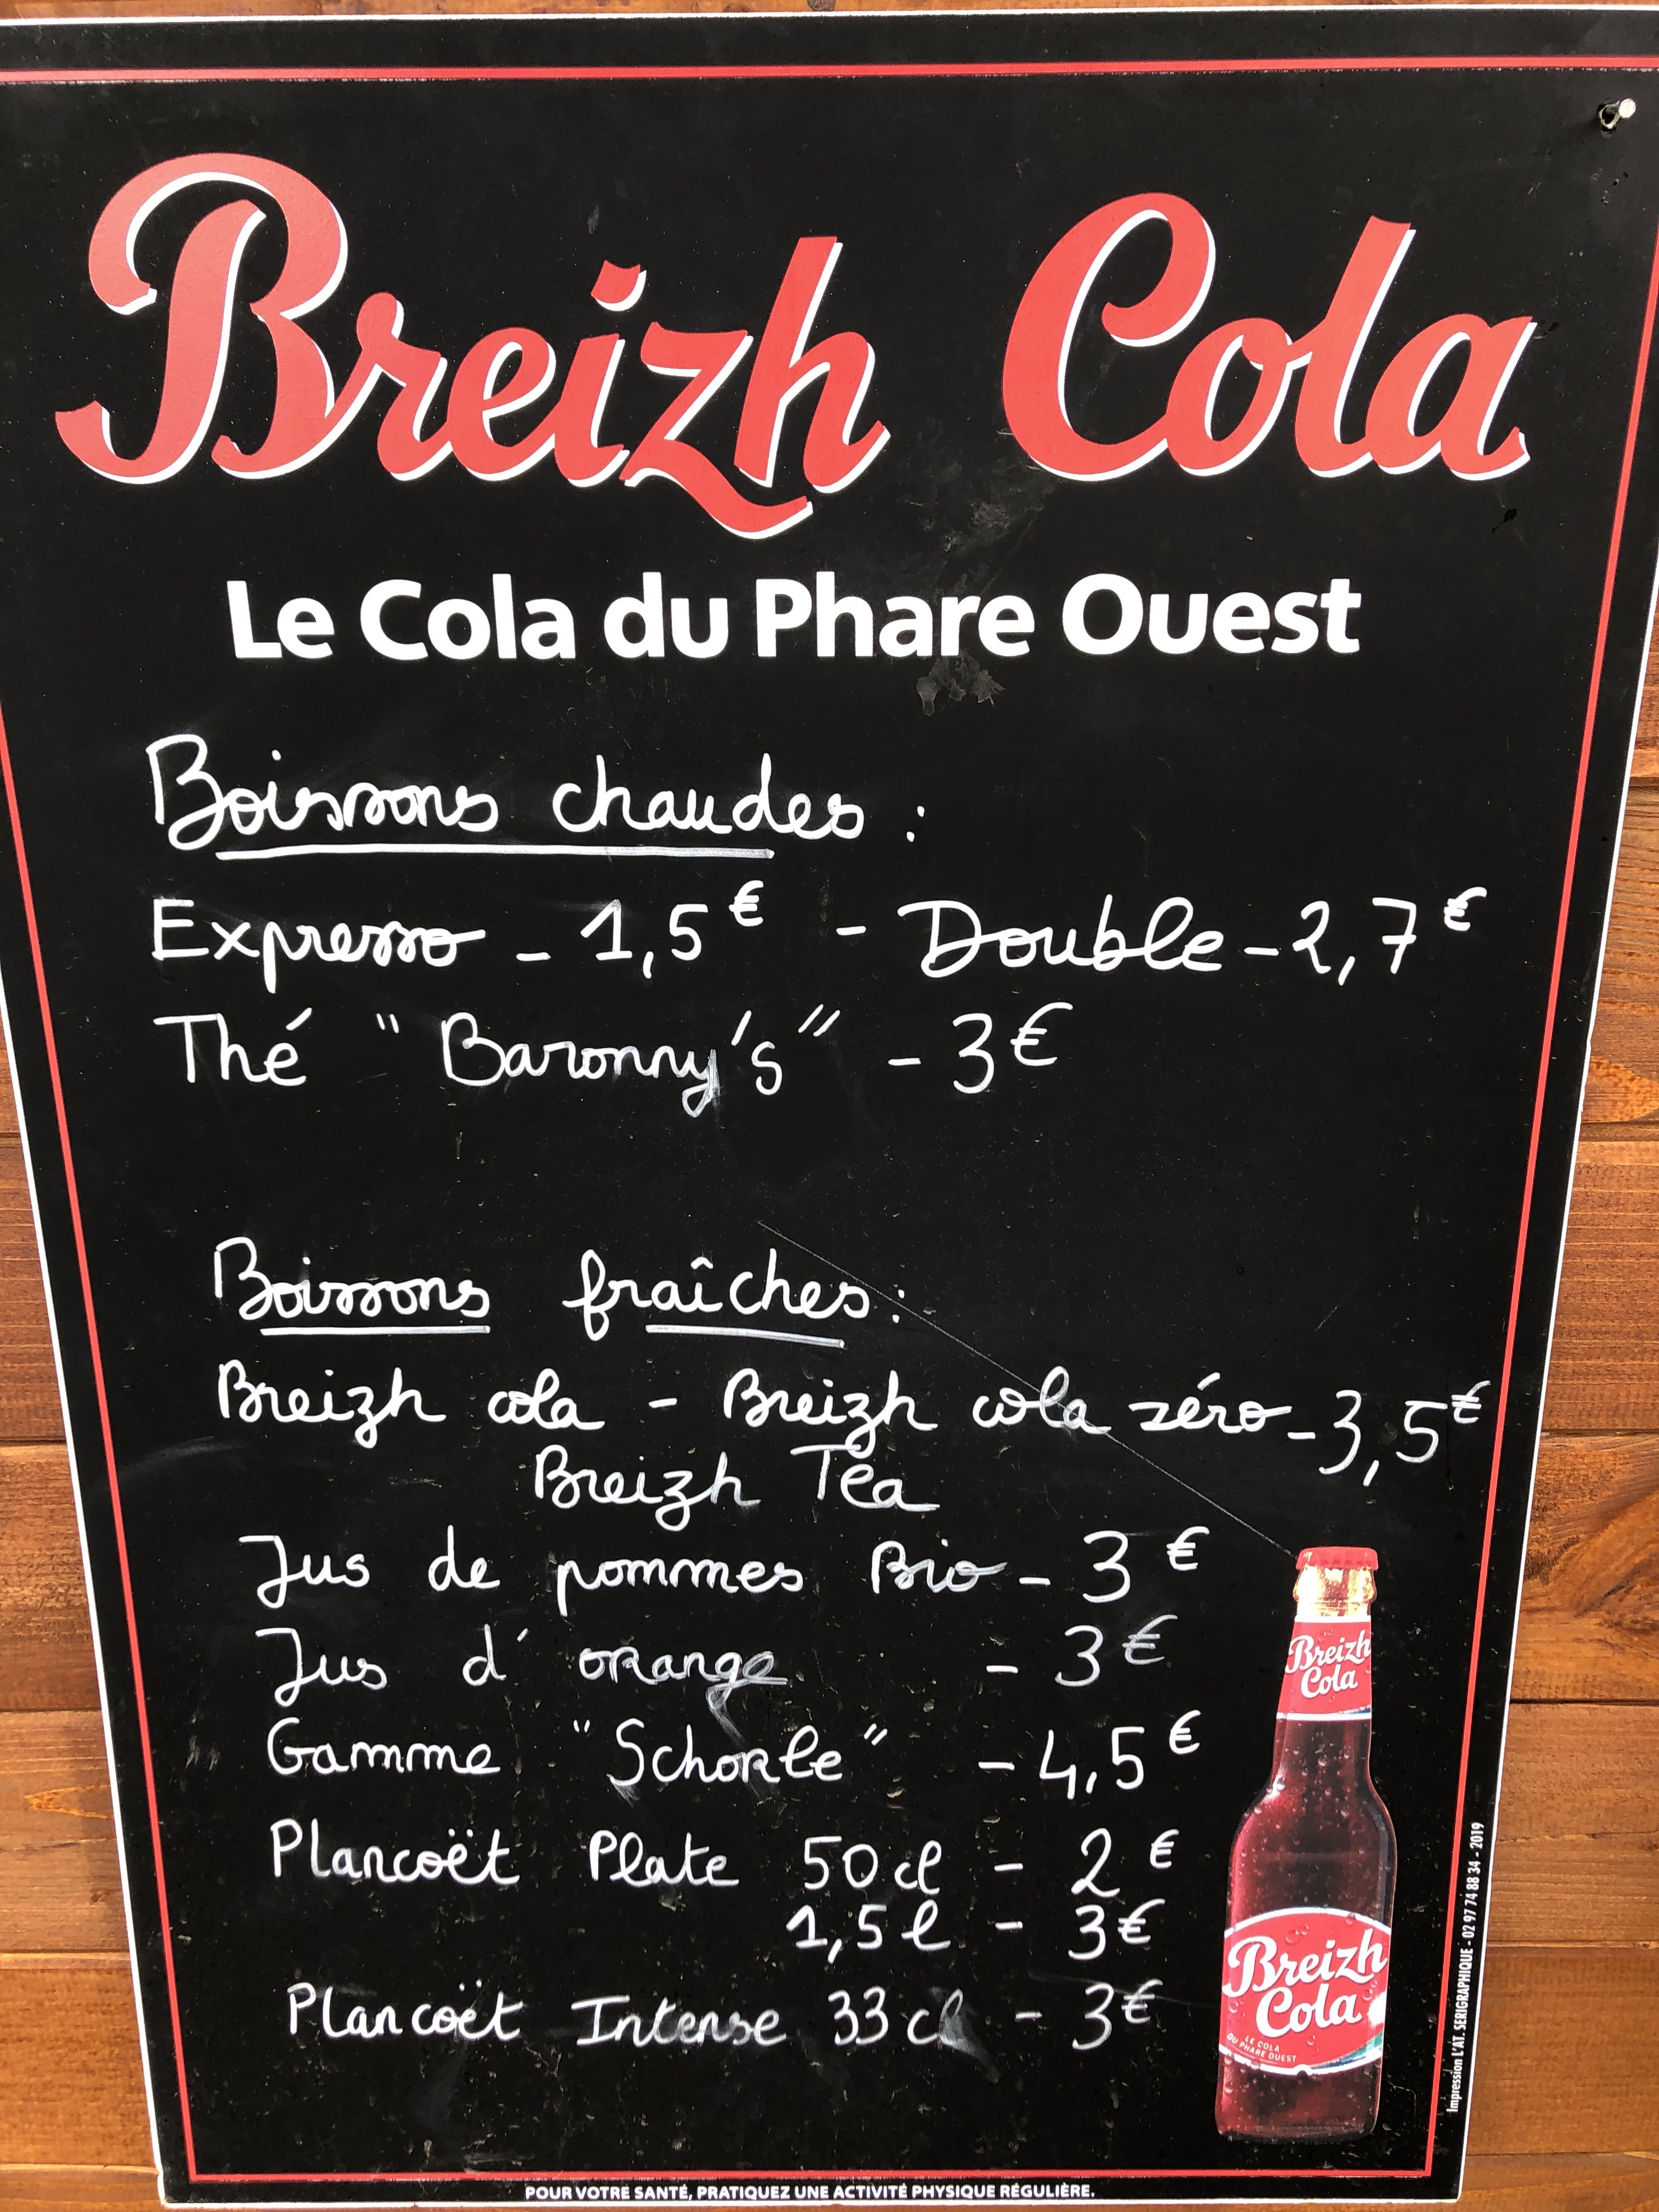 Breizh Cola
Le Cola du Phare Ouest
Boissons chaudes :
Expresso - 1,5€ - Double - 2,7€
Thé "Baronny's" - 3€
Boissons fraîches :
Breizh cola - Breizh cola zéro - 3,5€
Breizh Tea
Jus de pommes Bio - 3 €
Jus d'orange - 3€
Gamme "Schorle" - 4,5€
Plancoët Plate 50cl - 2 €
1,5l - 3€
Plancoët Intense 33cl - 3€
Breizh
Cola
Breizh
Cola
LE COLA
DU PHARE OUEST
Impression L'AT. SERIGRAPHIQUE - 02 97 74 88 34 - 2019
POUR VOTRE SANTÉ, PRATIQUEZ UNE ACTIVITÉ PHYSIQUE RÉGULIÈRE.